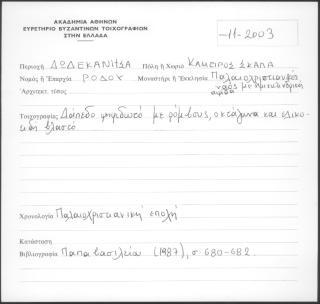 ΑΚΑΔΗΜΙΑ ΑΘΗΝΩΝ
ΕΥΡΕΤΗΡΙΟ ΒΥΖΑΝΤΙΝΩΝ ΤΟΙΧΟΓΡΑΦΙΩΝ
ΣΤΗΝ ΕΛΛΑΔΑ
-11-2003
Περιοχή ΔΩΔΕΚΑΝΗΣΑ Πόλη ή Χωριό ΚΑΜΕΙΡΟΣ ΣΚΑΛΑ
Νομός ή Ἐπαρχία ΡΟΔΟΥ Μοναστήρι ή Ἐκκλησία Παλαιοχριστιανικός
Ἀρχιτεκτ. τύπος ναός με ημικυλινδρική
αψίδα
Τοιχογραφίες Δάπεδο ψηφιδωτό με ρόμβους, οκτάγωνα και ελικο-
ειδή βλαστό
Χρονολογία Παλαιοχριστιανική εποχή
Κατάσταση
Βιβλιογραφία Παπαβασιλείου (1987), σ. 680-682.